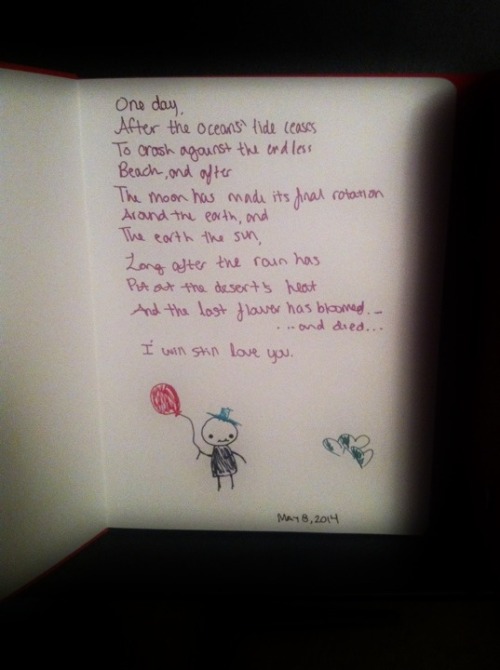 One day,
After the oceans' tide ceases
To crash against the endless
Beach, and after
The moon has made its final rotation
Around the earth, and
The earth the sun,
Long after the rain has
Put out the desert's heat
And the last flower has bloomed...
...and died...
I will still love you.
May 8, 2014